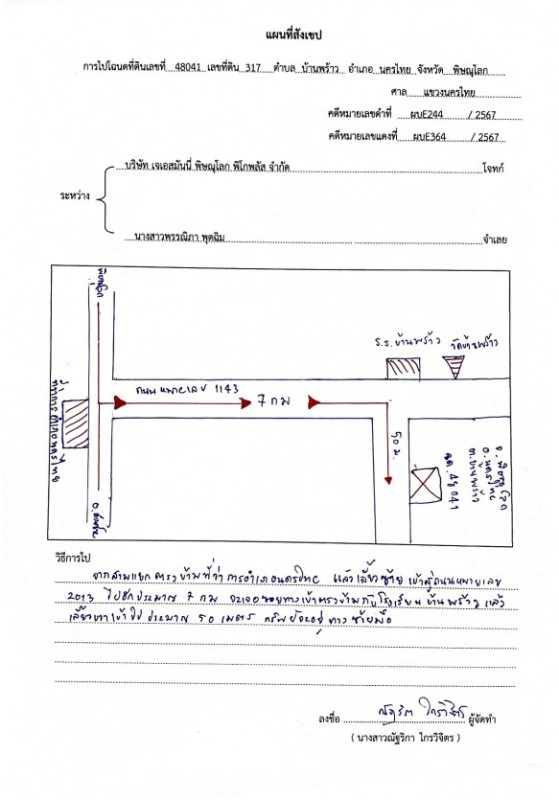 แผนที่สังเขป
การไปโฉนดที่ดินเลขที่ 48041 เลขที่ดิน 317 ตำบล บ้านพร้าว อำเภอ นครไทย จังหวัด พิษณุโลก
ศาล แขวงนครไทย
คดีหมายเลขดำที่ ผบE244 / 2567
คดีหมายเลขแดงที่ ผบE364 / 2567
บริษัท เจเอสมันนี่ พิษณุโลก พิโกพลัส จำกัด โจทก์
ระหว่าง
นางสาวพรรณิภา พุดฉิม จำเลย
พิษณุโลก
ร.ร.บ้านพร้าว วัดบ้านพร้าว
ถนน หมายเลข 1143
7 กม
50 ม.
ที่ว่าการอำเภอนครไทย
ฉด.48041
ต.บ้านพร้าว
อ.นครไทย
จ.พิษณุโลก
วิธีการไป
จากสามแยกตรงข้ามที่ว่าการอำเภอนครไทย แล้วเลี้ยวซ้าย เข้าสู่ถนนหมายเลข
2013 ไปอีกประมาณ 7 กม จะเจอซอยทางเข้าตรงข้ามกับโรงเรียนบ้านพร้าว แล้ว
เลี้ยวขวาเข้าไป ประมาณ 50 เมตร ทรัพย์จะอยู่ทางซ้ายมือ
ลงชื่อ ณัฐริกา ไกรวิจิตร ผู้จัดทำ
( นางสาวณัฐริกา ไกรวิจิตร )